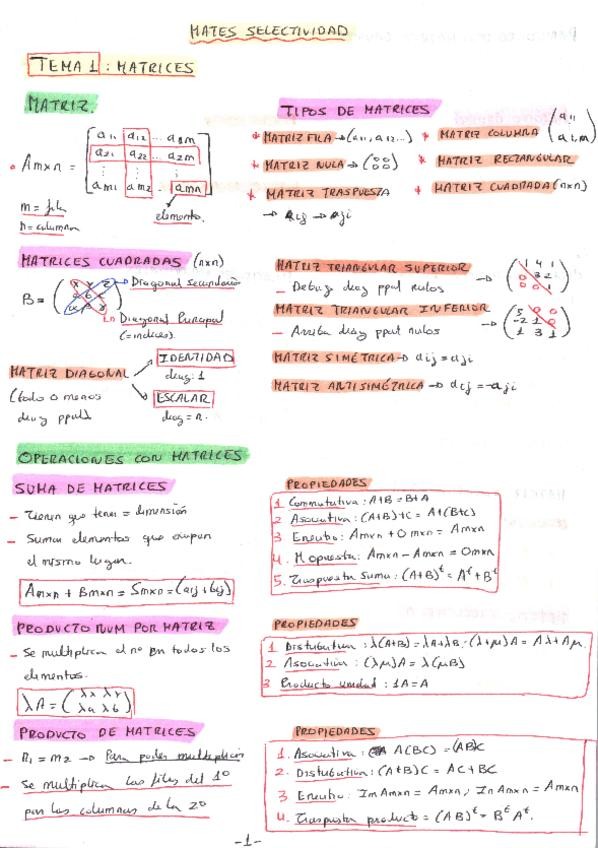 MATES SELECTIVIDAD
TEMA 1: MATRICES
MATRIZ.
Amxn = [a11 a12 ... a2m
a21 a22 ... a2m
⋮ ⋮ ⋮
am1 am2 ... amn]
m = fila
n = columna
elemento.
TIPOS DE MATRICES
* MATRIZ FILA → (a11, a12...)
* MATRIZ COLUMNA (a11 a2,m)
* MATRIZ NULA → (0 0 0 0)
* MATRIZ RECTANGULAR
* MATRIZ TRASPUESTA
* MATRIZ CUADRADA (nxn)
→ aij → aji
MATRICES CUADRADAS (nxn)
B =
Diagonal secundaria
Diagonal Principal
(= indices).
MATRIZ DIAGONAL
(todo 0 menos
diag ppal)
IDENTIDAD
diag: 1
ESCALAR
diag = n.
MATRIZ TRIANGULAR SUPERIOR
- Debajo diag ppal nulos → (1 4 1
0 3 2
0 0 1)
MATRIZ TRIANGULAR INFERIOR
- Arriba diag ppal nulos → (5 0 0
-2 1 0
1 3 1)
MATRIZ SIMÉTRICA → aij = aji
MATRIZ ANTISIMÉTRICA → aij = -aji
OPERACIONES CON MATRICES
SUMA DE MATRICES
- Tienen que tener = dimensión
- Suman elementos que ocupan
el mismo lugar.
Amxn + Bmxn = Smxn = (aij + bij)
PROPIEDADES
1 Conmutativa: A+B = B+A
2 Asociativa: (A+B)+C = A+(B+C)
3 Eneutro: Amxn + Omxn = Amxn
4. Mopuesta: Amxn - Amxn = Omxn
5. Traspuesta Suma: (A+B)ᵗ = Aᵗ + Bᵗ
PRODUCTO NUM POR MATRIZ
- Se multiplica el nº por todos los
elementos.
λA = (λx λy
λa λb)
PROPIEDADES
1 Distributiva: λ(A+B) = λA+λB · (λ+μ)A = Aλ + Aμ.
2 Asociativa: (λμ)A = λ(μB)
3 Producto unidad: 1A = A
PRODUCTO DE MATRICES
- n1 = m2 → Para poder multiplicar
- Se multiplica las filas del 1º
por las columnas de la 2º
PROPIEDADES
1. Asociativa: A(BC) = (AB)C
2. Distributiva: (A+B)C = AC + BC
3 Eneutro: Im Amxn = Amxn; In Amxn = Amxn
4. Traspuesta producto = (AB)ᵗ = Bᵗ Aᵗ.
-1-